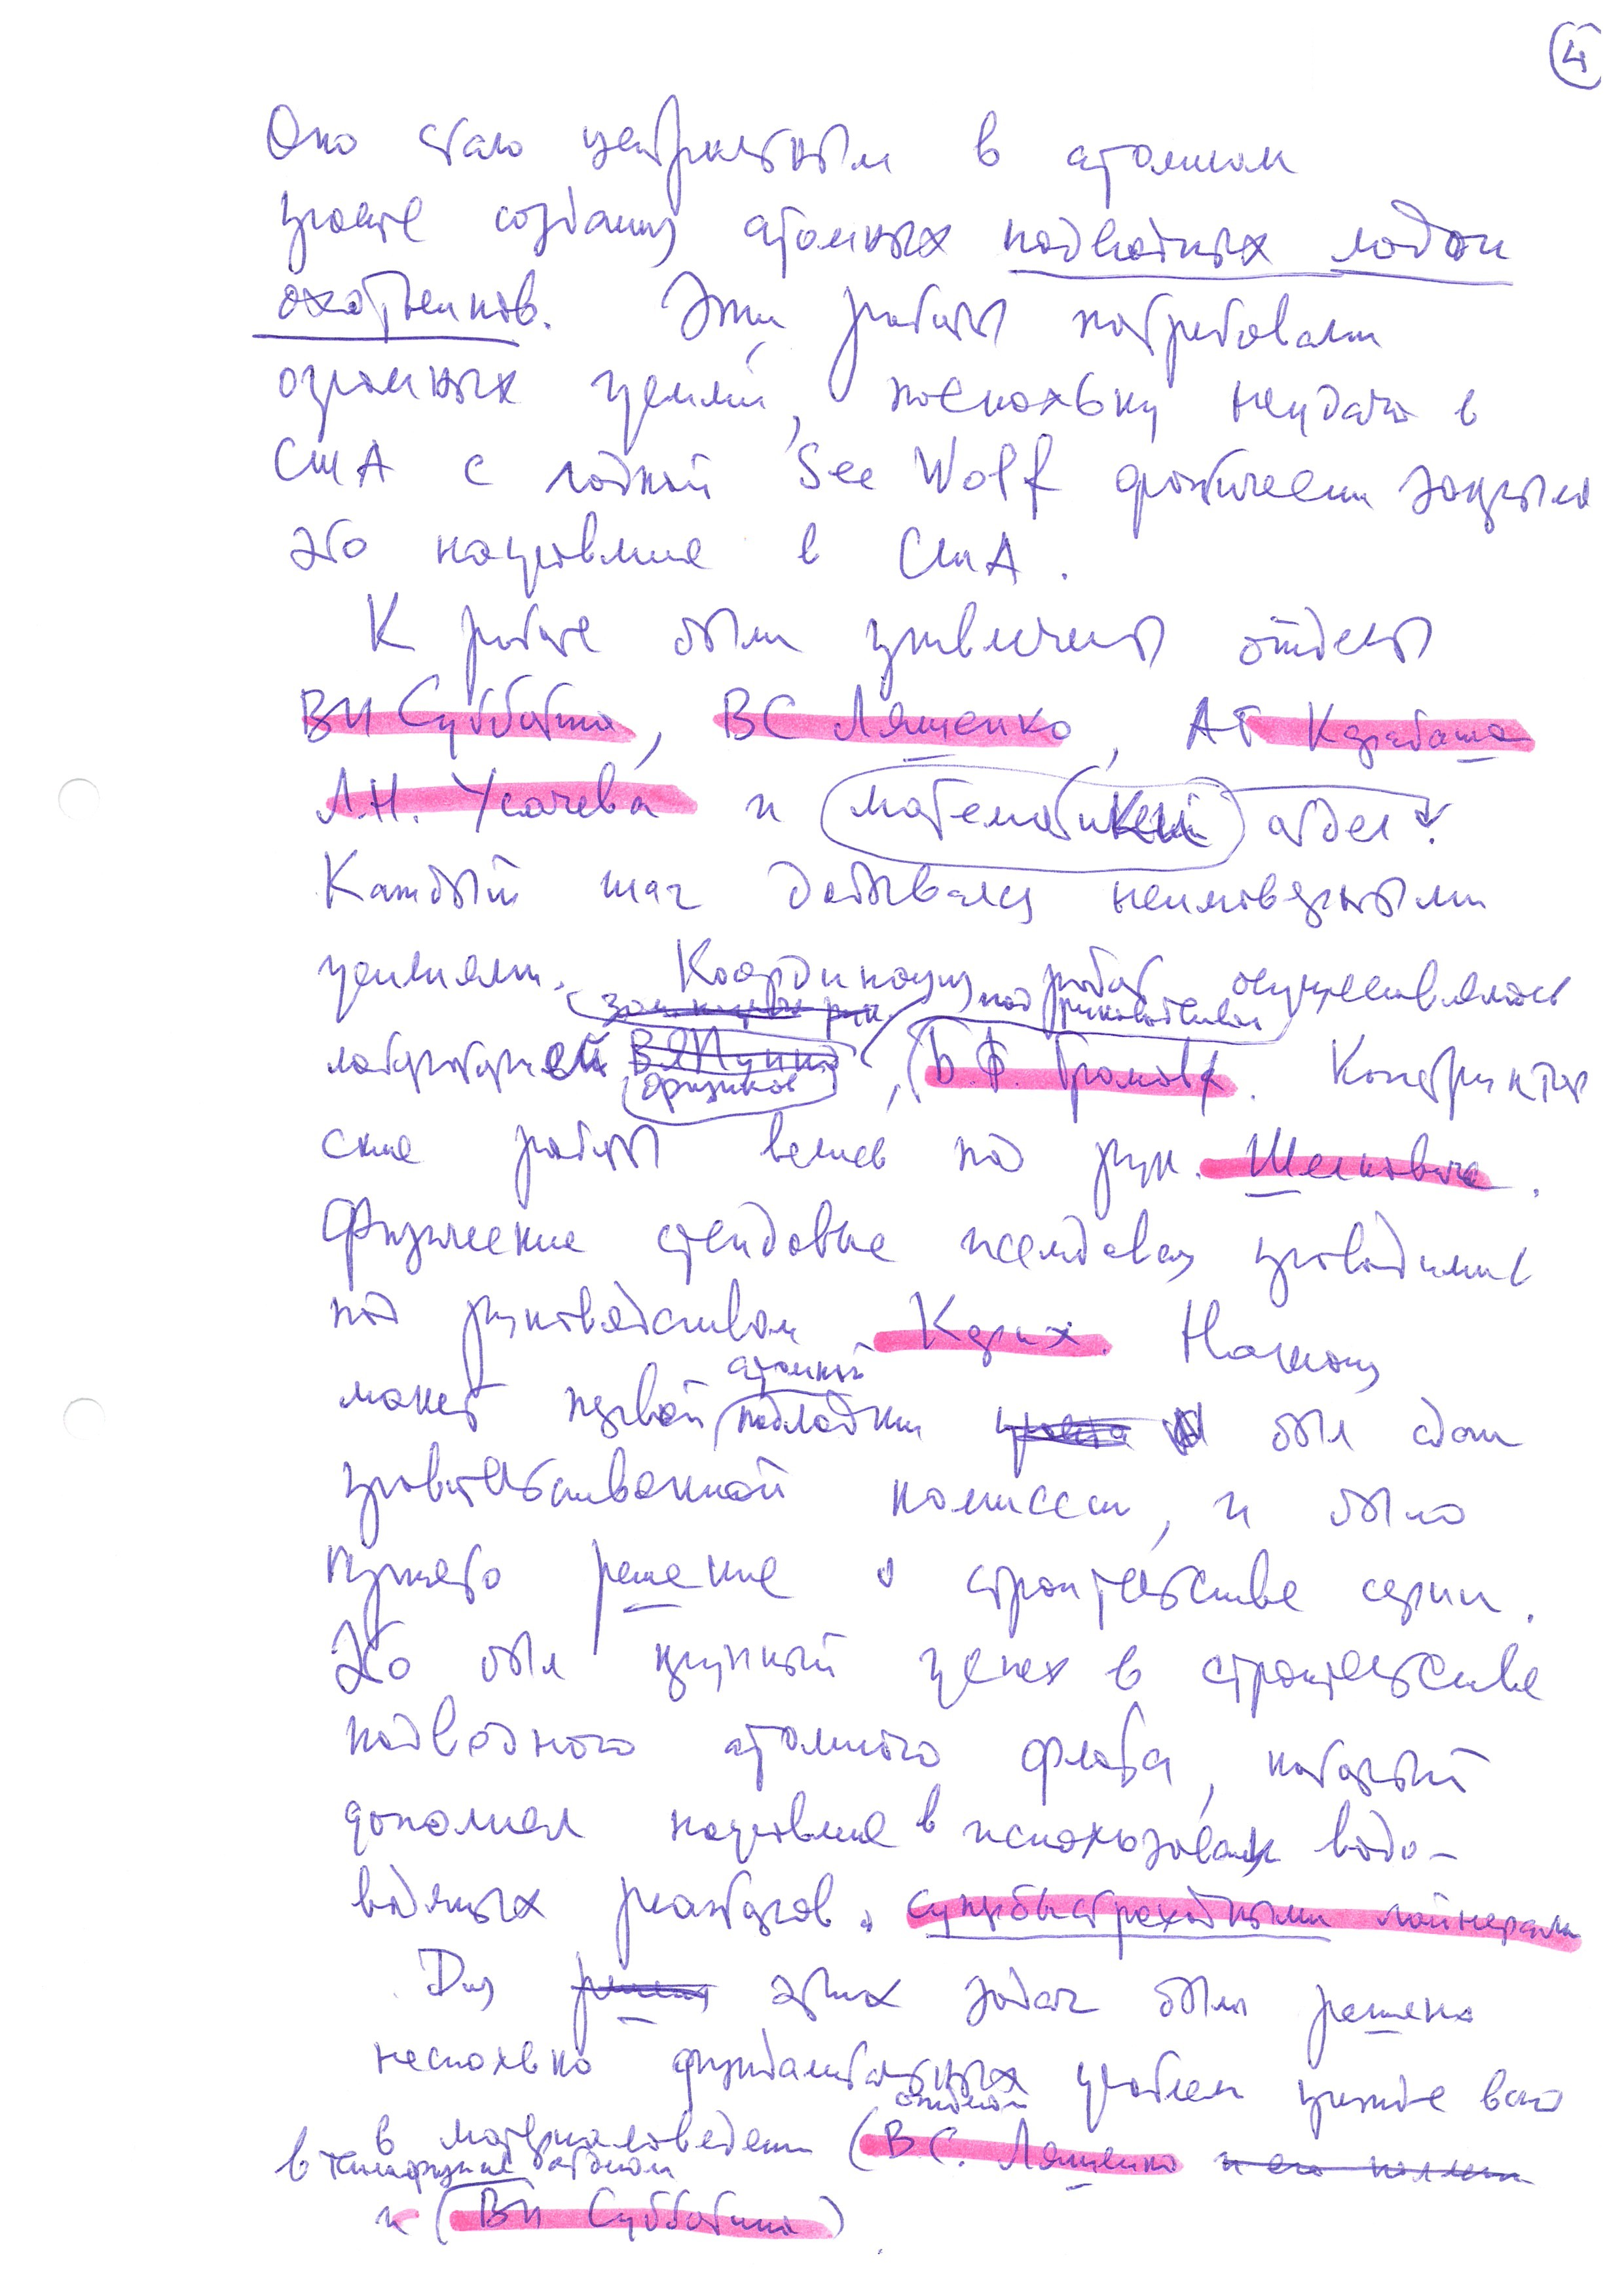 4
Оно стало центральным в атомном
проекте создания атомных подводных лодок
охотников. Эти работы потребовали
огромных усилий, поскольку неудача в
США с лодкой See Wolf фактически закрыла
это направление в США.
К работе были привлечены отделы
ВИ Субботина, ВС Лященко, АГ Карабаша
Л.Н. Усачева и математики отдел.
Каждый шаг давался неимоверными
усилиями. Координация работ осуществлялась
под руководителем
лабораторией физиков, Б.Ф. Громов. Конструктор
ские работы велись под рук. Шелковича.
Физические стендовые исследован проводились
под руководством Кузих. Наконец
атомной
макет первой подлодки был сдан
правительственной комиссии, и было
принято решение о строительстве серии.
Это был крупный успех в строительстве
подводного атомного флота, который
дополнял направление в использовании водо-
водяных реакторов. супербыстроходными лайнерами
Для решения этих задач были решено
несколько фундаментальных проблем прежде всего
отделом
в материаловедении (В С. Лященко и его коллеги
в теплофизике отделом
и (ВИ Субботина)